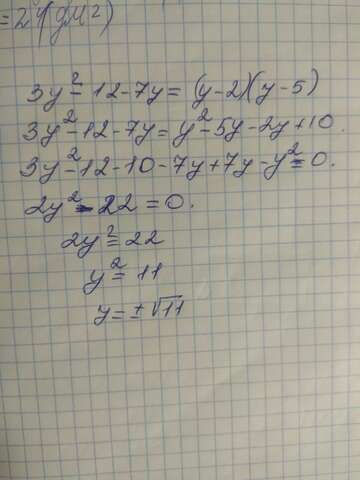 =24(дм²)
3y²-12-7y=(y-2)(y-5)
3y²-12-7y=y²-5y-2y+10.
3y²-12-10-7y+7y-y²=0.
2y²-22=0.
2y²=22
y²=11
y=±√11